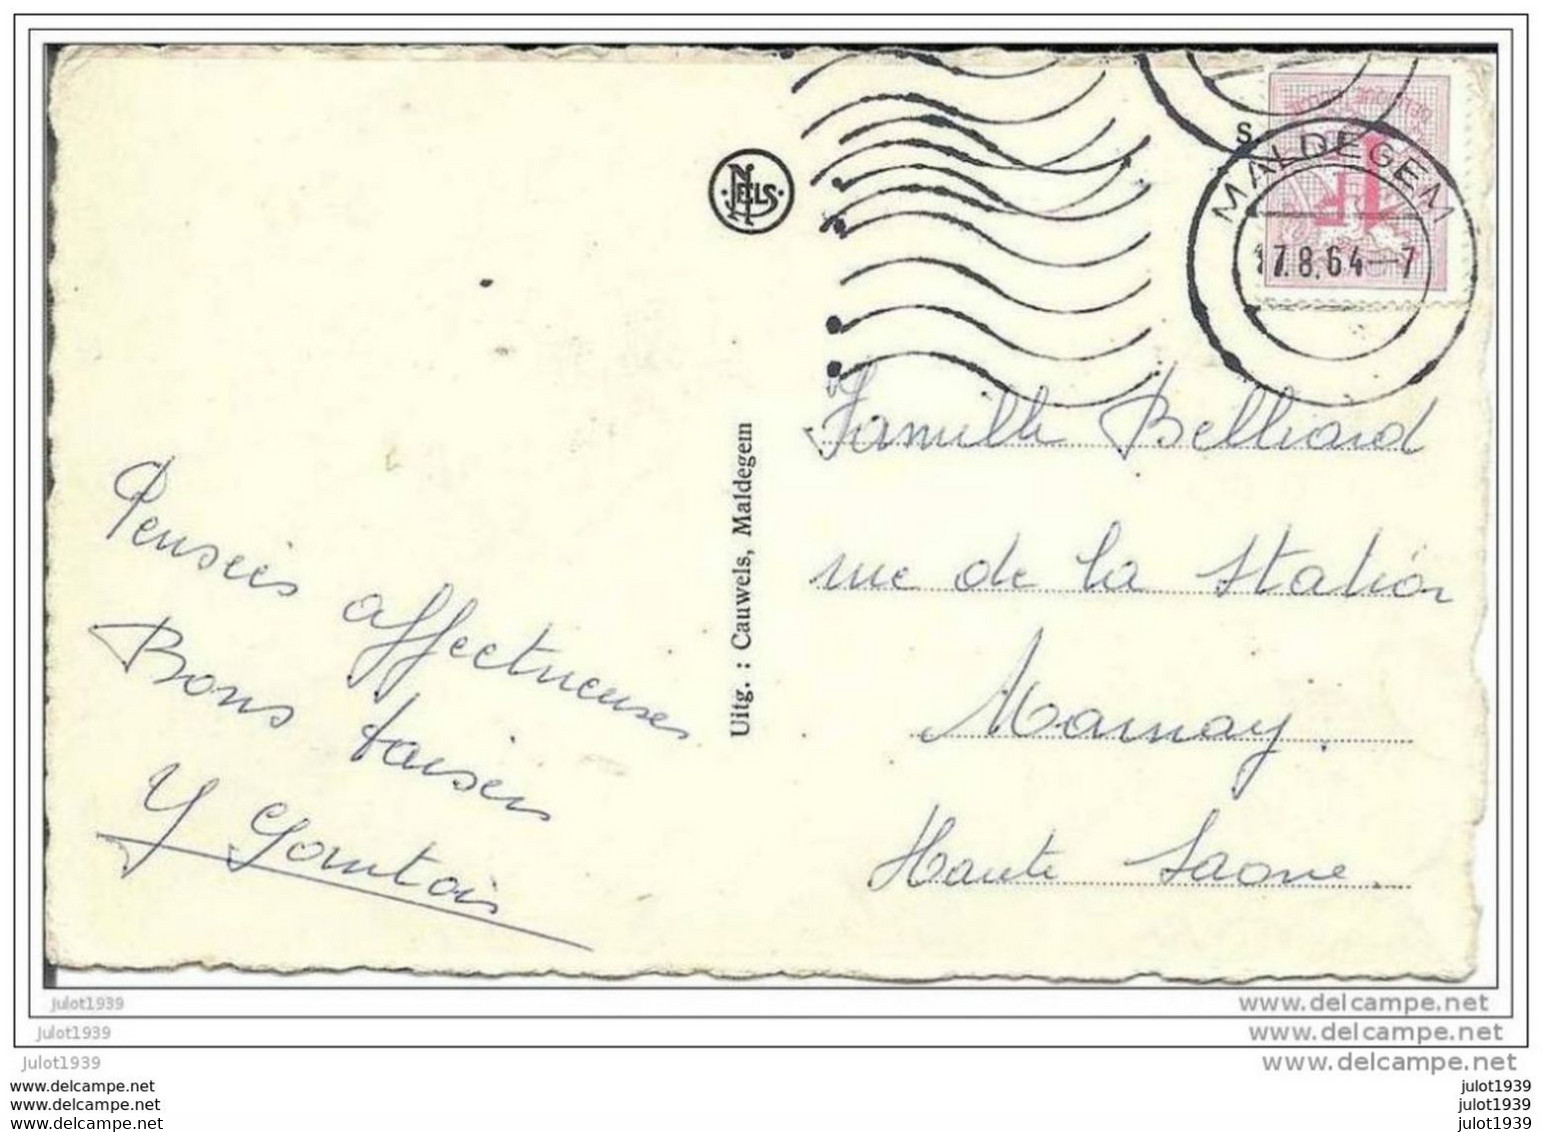 NELS
BELGIQUE BELGIË
1F
S
MALDEGEM
17.8.64-7
Pensées affectueuses
Bons baisers
Y
Uitg. : Cauwels, Maldegem
Famille Belliard
rue de la Station
Marnay.
Haute Saone.
julot1939
www.delcampe.net
julot1939
www.delcampe.net
julot1939
www.delcampe.net
www.delcampe.net
julot1939
www.delcampe.net
julot1939
www.delcampe.net
julot1939